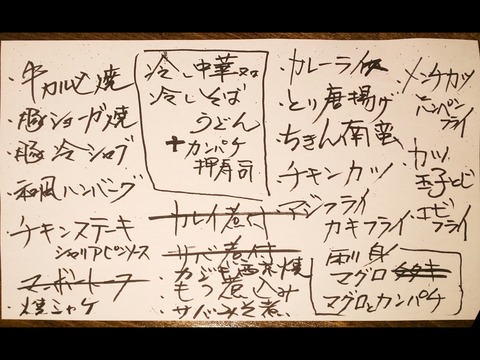 ・牛カルビ焼
・豚ショーガ焼
・豚冷シャブ
・和風ハンバーグ
チキンステーキ
シャリアピンソース
マーボートーフ
・焼シャケ
冷し中華又は
冷しそば
うどん
+カンパチ
押寿司
カレイ煮付
サバ煮付
・カジキ西京焼
・もつ煮込み
・サバみそ煮
・カレーライス
・とり唐揚げ
・ちきん南蛮
チキンカツ
アジフライ
カキフライ
刺身
マグロ
マグロとカンパチ
・メンチカツ
・ハンペン
フライ
・カツ
玉子とじ
・エビ
フライ